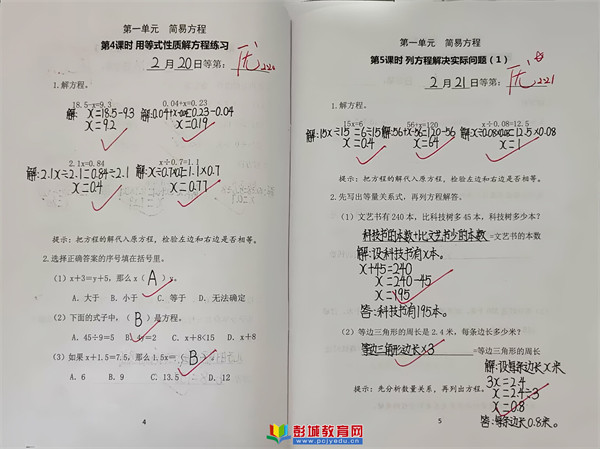 第一单元 简易方程
第4课时 用等式性质解方程练习
2月20日等第: 优 2.20
1.解方程。
18.5-x=9.3 0.04+x=0.23
解: x=18.5-9.3 解:0.04+x-0.04=0.23-0.04
x=9.2 x=0.19
2.1x=0.84 x÷0.7=1.1
解:2.1x÷2.1=0.84÷2.1 解:x÷0.7×0.7=1.1×0.7
x=0.4 x=0.77
提示:把方程的解代入原方程,检验左边和右边是否相等。
2.选择正确答案的序号填在括号里。
(1)x+3=y+5,那么x( A )y。
A.大于 B.小于 C.等于 D.无法确定
(2)下面的式子中,( B )是方程。
A.45÷9=5 B.4y=2 C.x+8<15 D.x+8
(3)如果x+1.5=7.5,那么1.5x=( B )
A.6 B.9 C.13.5 D.12
4
第一单元 简易方程
第5课时 列方程解决实际问题(1)
2月21日等第: 优 2.21
1.解方程。
15x=6 56+x=120 x÷0.08=12.5
解:15x÷15=6÷15 解:56+x-56=120-56 解:x÷0.08×0.08=12.5×0.08
x=0.4 x=64 x=1
提示:把方程的解代入原方程,检验左边和右边是否相等。
2.先写出等量关系式,再列方程解答。
(1)文艺书有240本,比科技树多45本,科技树多少本?
科技书的本数+比文艺书少的本数=文艺书的本数
解:设科技书有x本。
x+45=240
x=240-45
x=195
答:科技书有195本。
(2)等边三角形的周长是2.4米,每条边长多少米?
等边三角形边长×3=等边三角形的周长
解:设每条边长x米
3x=2.4
提示:先分析数量关系,再列出方程。
x=2.4÷3
x=0.8
答:每条边长0.8米。
5
彭城教育网
www.pcjyedu.cn